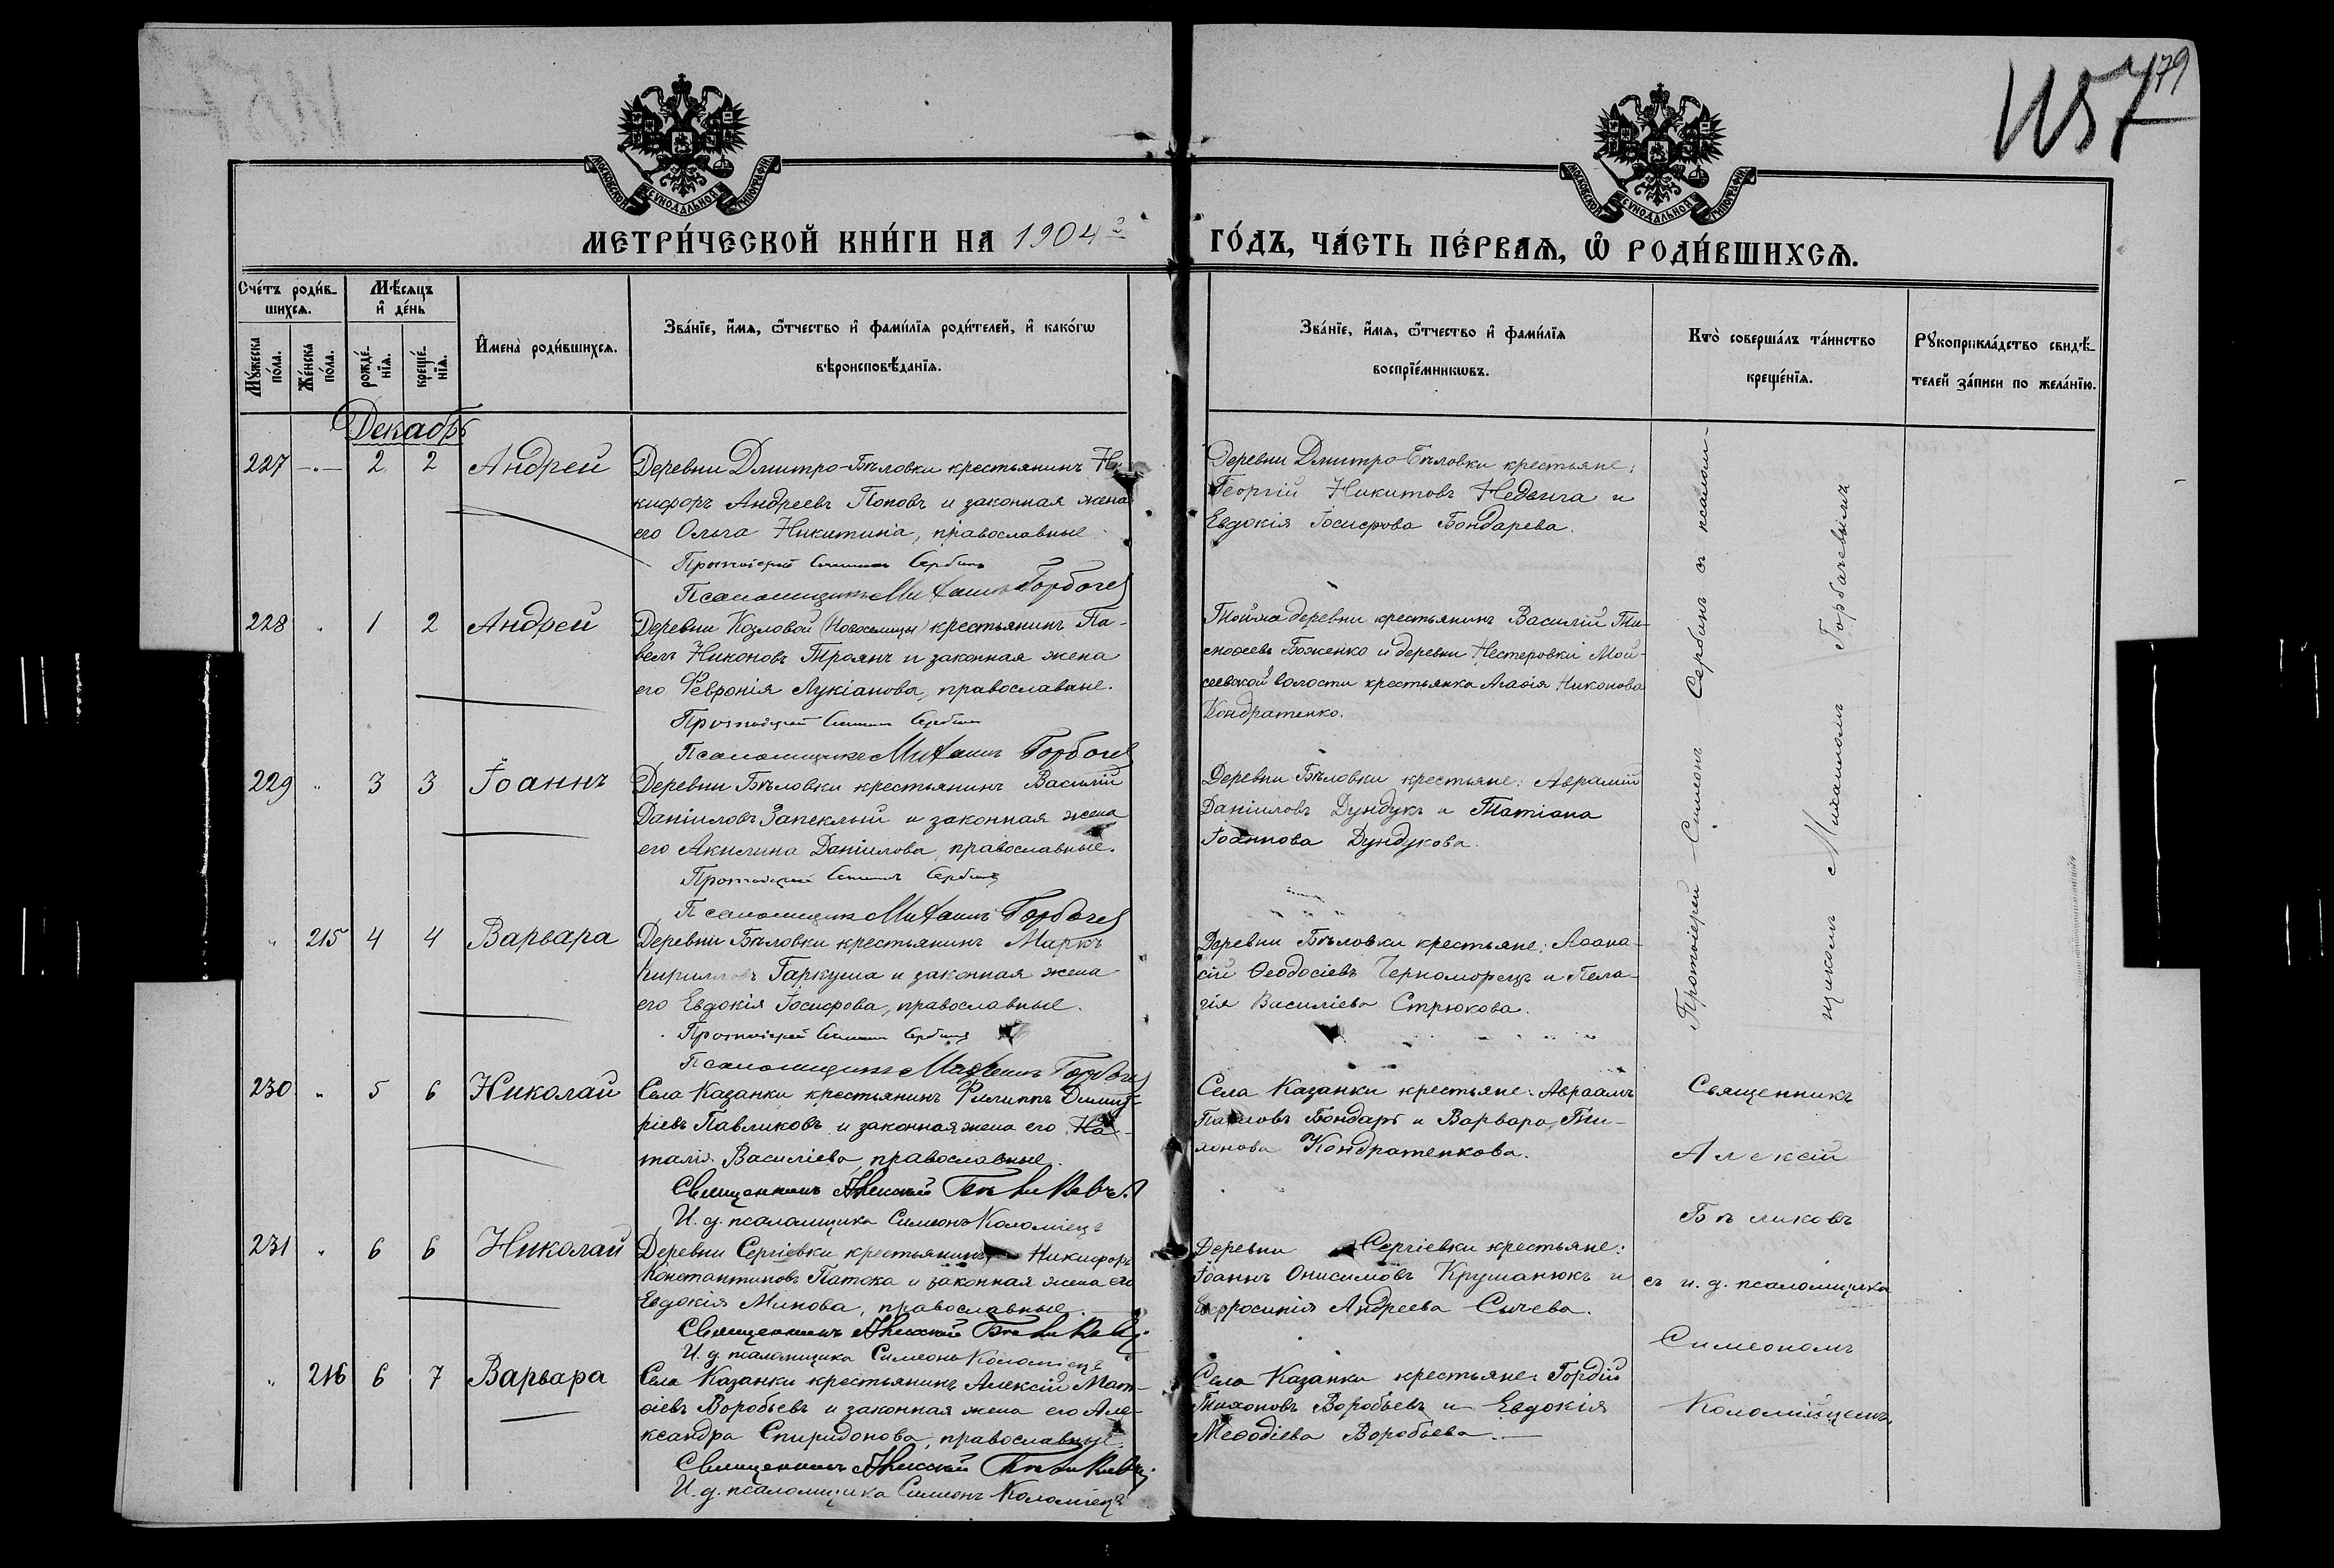 1157
179
МОСКОВСКОЙ СѴНОДАЛЬНОЙ ТИПОГРАФІИ
МОСКОВСКОЙ СѴНОДАЛЬНОЙ ТИПОГРАФІИ
МЕТРИ́ЧЕСКОЙ КНИ́ГИ НА 1904 г.
ГО́ДЪ, ЧА́СТЬ ПЕ́РВАѦ, Ѡ҆ РОДИ́ВШИХСѦ.
Сче́тъ роди́в-
шихсѧ.
Мѣ́сѧцъ
и҆ де́нь
Мꙋ́жеска
по́ла.
Же́нска
по́ла.
рожде́-
нїѧ.
креще́-
нїѧ.
И҆мена̀ роди́вшихсѧ.
Зва́нїе, и҆́мѧ, ѻ҆́тчество и҆ фами́лїѧ роди́телей, и҆ како́гѡ
вѣроисповѣ́данїѧ.
Зва́нїе, и҆́мѧ, ѻ҆́тчество и҆ фами́лїѧ
воспрїе́мникѡвъ.
Кто̀ соверша́лъ та́инство
креще́нїѧ.
Рꙋкоприкла́дство свидѣ́-
телей за́писи по жела́нїю.
Декабрь
227 -"- 2 2 Андрей
Деревни Дмитро-Бѣловки крестьянинъ Ни-
кифоръ Андреевъ Поповъ и законная жена
его Ольга Никитина, православные
Протоіерей Симеонъ Сербинъ
Псаломщикъ Михаилъ Горбачев
Деревни Дмитро-Бѣловки крестьяне:
Георгій Никитовъ и
Евдокія Іосифова Бондарева.
228 " 1 2 Андрей
Деревни Козловой (Новоселицы) крестьянинъ Па-
велъ Никоновъ Троянъ и законная жена
его Февронія Лукіанова, православные.
Протоіерей Симеонъ Сербинъ
Псаломщикъ Михаилъ Горбачев
Тойже деревни крестьянинъ Василій Ти-
моѳеевъ Боженко и деревни Нестеровки Мои-
сеевской волости крестьянка Агаѳія Никонова
Кондратенко.
229 " 3 3 Іоаннъ
Деревни Бѣловки крестьянинъ Василій
Даніиловъ Запеклый и законная жена
его Акилина Даніилова, православные.
Протоіерей Симеонъ Сербинъ
Псаломщикъ Михаилъ Горбачев
Деревни Бѣловки крестьяне: Аврамій
Даніиловъ Дундукъ и Татіана
Іоаннова Дундукова.
" 215 4 4 Варвара
Деревни Бѣловки крестьянинъ Маркъ
Кирилловъ Гаркуша и законная жена
его Евдокія Іосифова, православные.
Протоіерей Симеонъ Сербинъ
Псаломщикъ Михаилъ Горбачев
Деревни Бѣловки крестьяне: Аѳана-
сій Ѳеодосіевъ Черноморецъ и Пела-
гія Василіева Стрюкова.
Протоіерей Симеонъ Сербинъ съ псалом-
щикомъ Михаиломъ Горбачевымъ
230 " 5 6 Николай
Села Казанки крестьянинъ Филиппъ Димит-
ріевъ Павликовъ и законная жена его На-
талія Василіева, православные.
Священникъ Алексій Бѣликовъ
И. д. псаломщика Симеонъ Коломіецъ
Села Казанки крестьяне: Авраамъ
Павловъ Бондарь и Варвара Ти-
хонова Кондратенкова.
231 " 6 6 Николай
Деревни Сергіевки крестьянинъ Никифоръ
Константиновъ Патока и законная жена его
Евдокія Минова, православные.
Священникъ Алексій Бѣликовъ
И. д. псаломщика Симеонъ Коломіецъ
Деревни Сергіевки крестьяне:
Іоаннъ Онисимовъ Круманюкъ и
Евфросинія Андреева Сычева.
" 216 6 7 Варвара
Села Казанки крестьянинъ Алексій Мат-
ѳіевъ Воробьевъ и законная жена его Але-
ксандра Спиридонова, православные.
Священникъ Алексій Бѣликовъ
И. д. псаломщика Симеонъ Коломіецъ
Села Казанки крестьяне: Гордій
Тихоновъ Воробьевъ и Евдокія
Меѳодіева Воробьева.
Священникъ
Алексій
Бѣликовъ
съ и. д. псаломщика
Симеономъ
Коломійцемъ